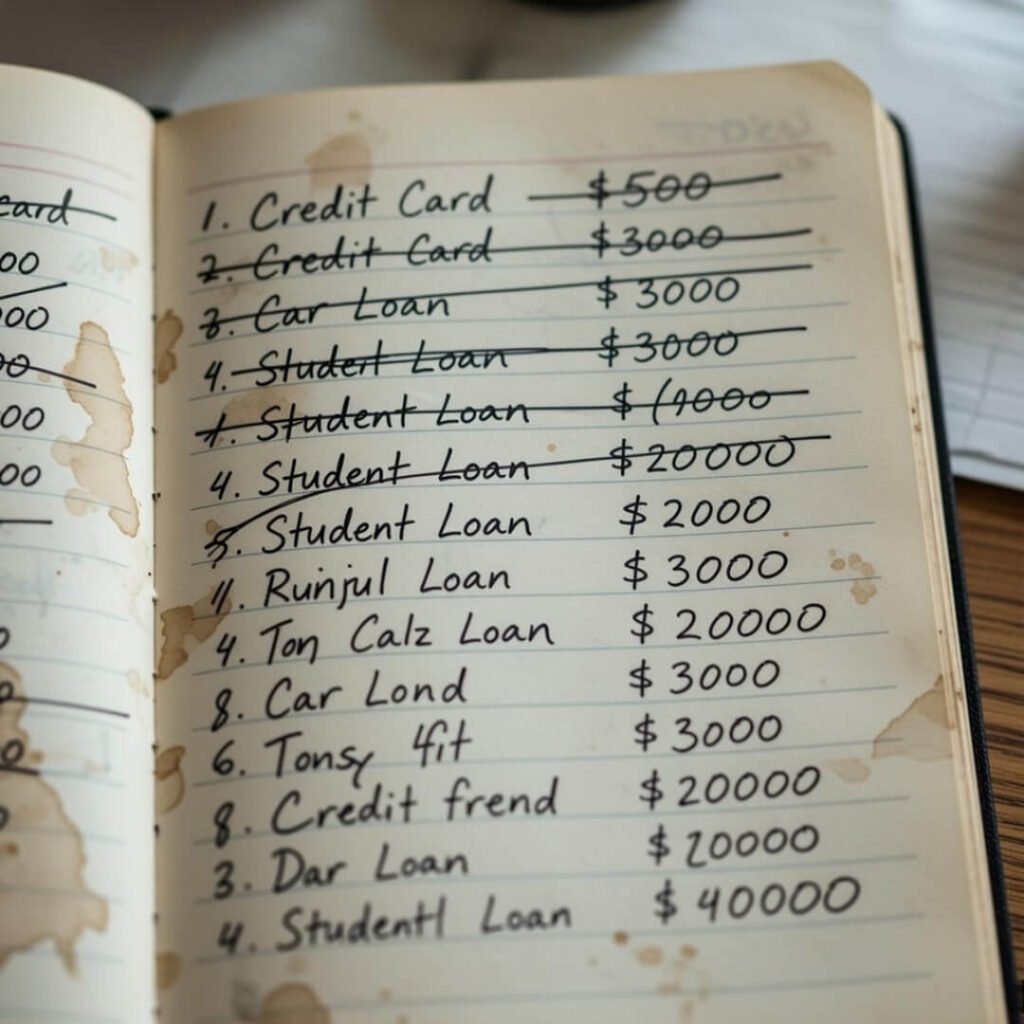 card
00
00
00
00
00
0
0
0
0
1. Credit Card $500
2. Credit Card $3000
3. Car Loan $3000
4. Student Loan $3000
1. Student Loan $ (1000
4. Student Loan $20000
5. Student Loan $2000
11. Runjul Loan $3000
4. Ton Calz Loan $20000
8. Car Lond $3000
6. Tonsy 4fit $3000
8. Credit frend $20000
3. Dar Loan $20000
4. Studentl Loan $40000